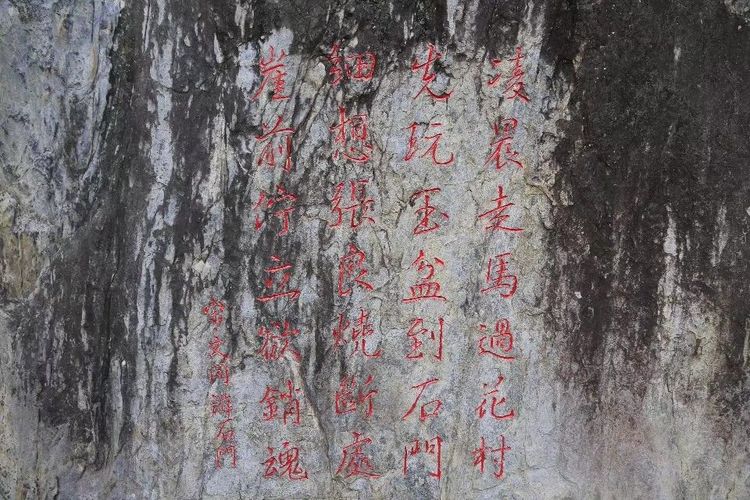 凌晨走馬過花村
先玩玉盆到石門
細想張良燒斷處
崖前佇立欲銷魂
文同游石門